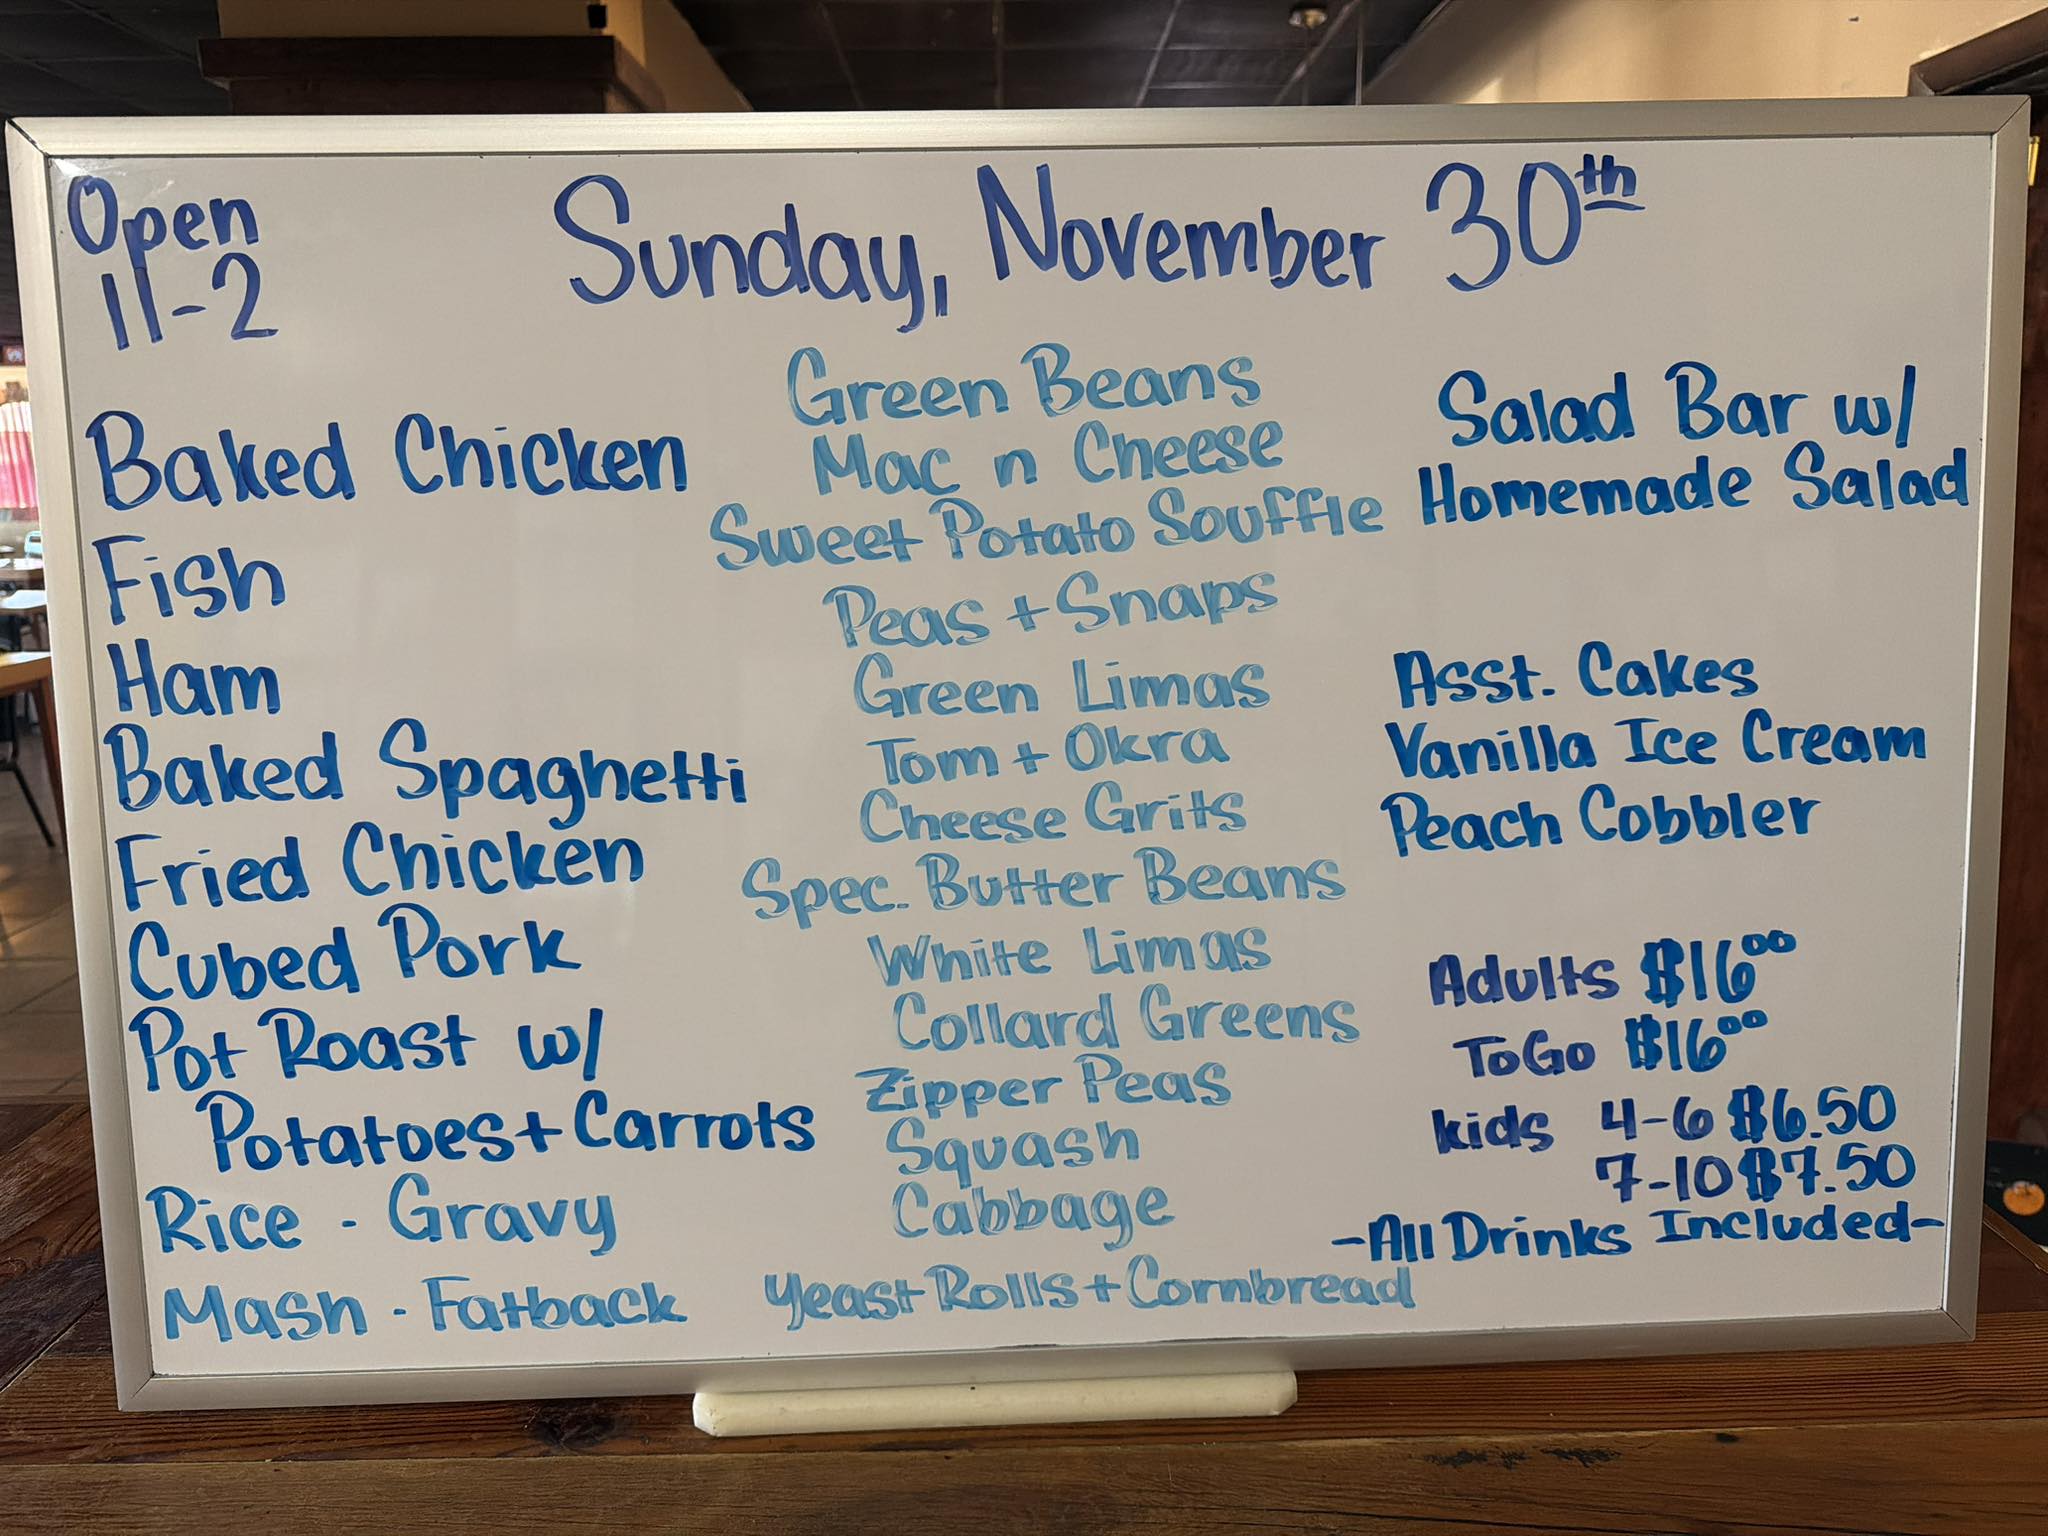 Open
11-2
Sunday, November 30th
Baked Chicken
Fish
Ham
Baked Spaghetti
Fried Chicken
Cubed Pork
Pot Roast w/
Potatoes + Carrots
Rice - Gravy
Mash - Fatback
Green Beans
Mac n Cheese
Sweet Potato Souffle
Peas + Snaps
Green Limas
Tom + Okra
Cheese Grits
Spec. Butter Beans
White Limas
Collard Greens
Zipper Peas
Squash
Cabbage
Yeast Rolls + Cornbread
Salad Bar w/
Homemade Salad
Asst. Cakes
Vanilla Ice Cream
Peach Cobbler
Adults $16.00
ToGo $16.00
Kids 4-6 $6.50
7-10 $7.50
-All Drinks Included-